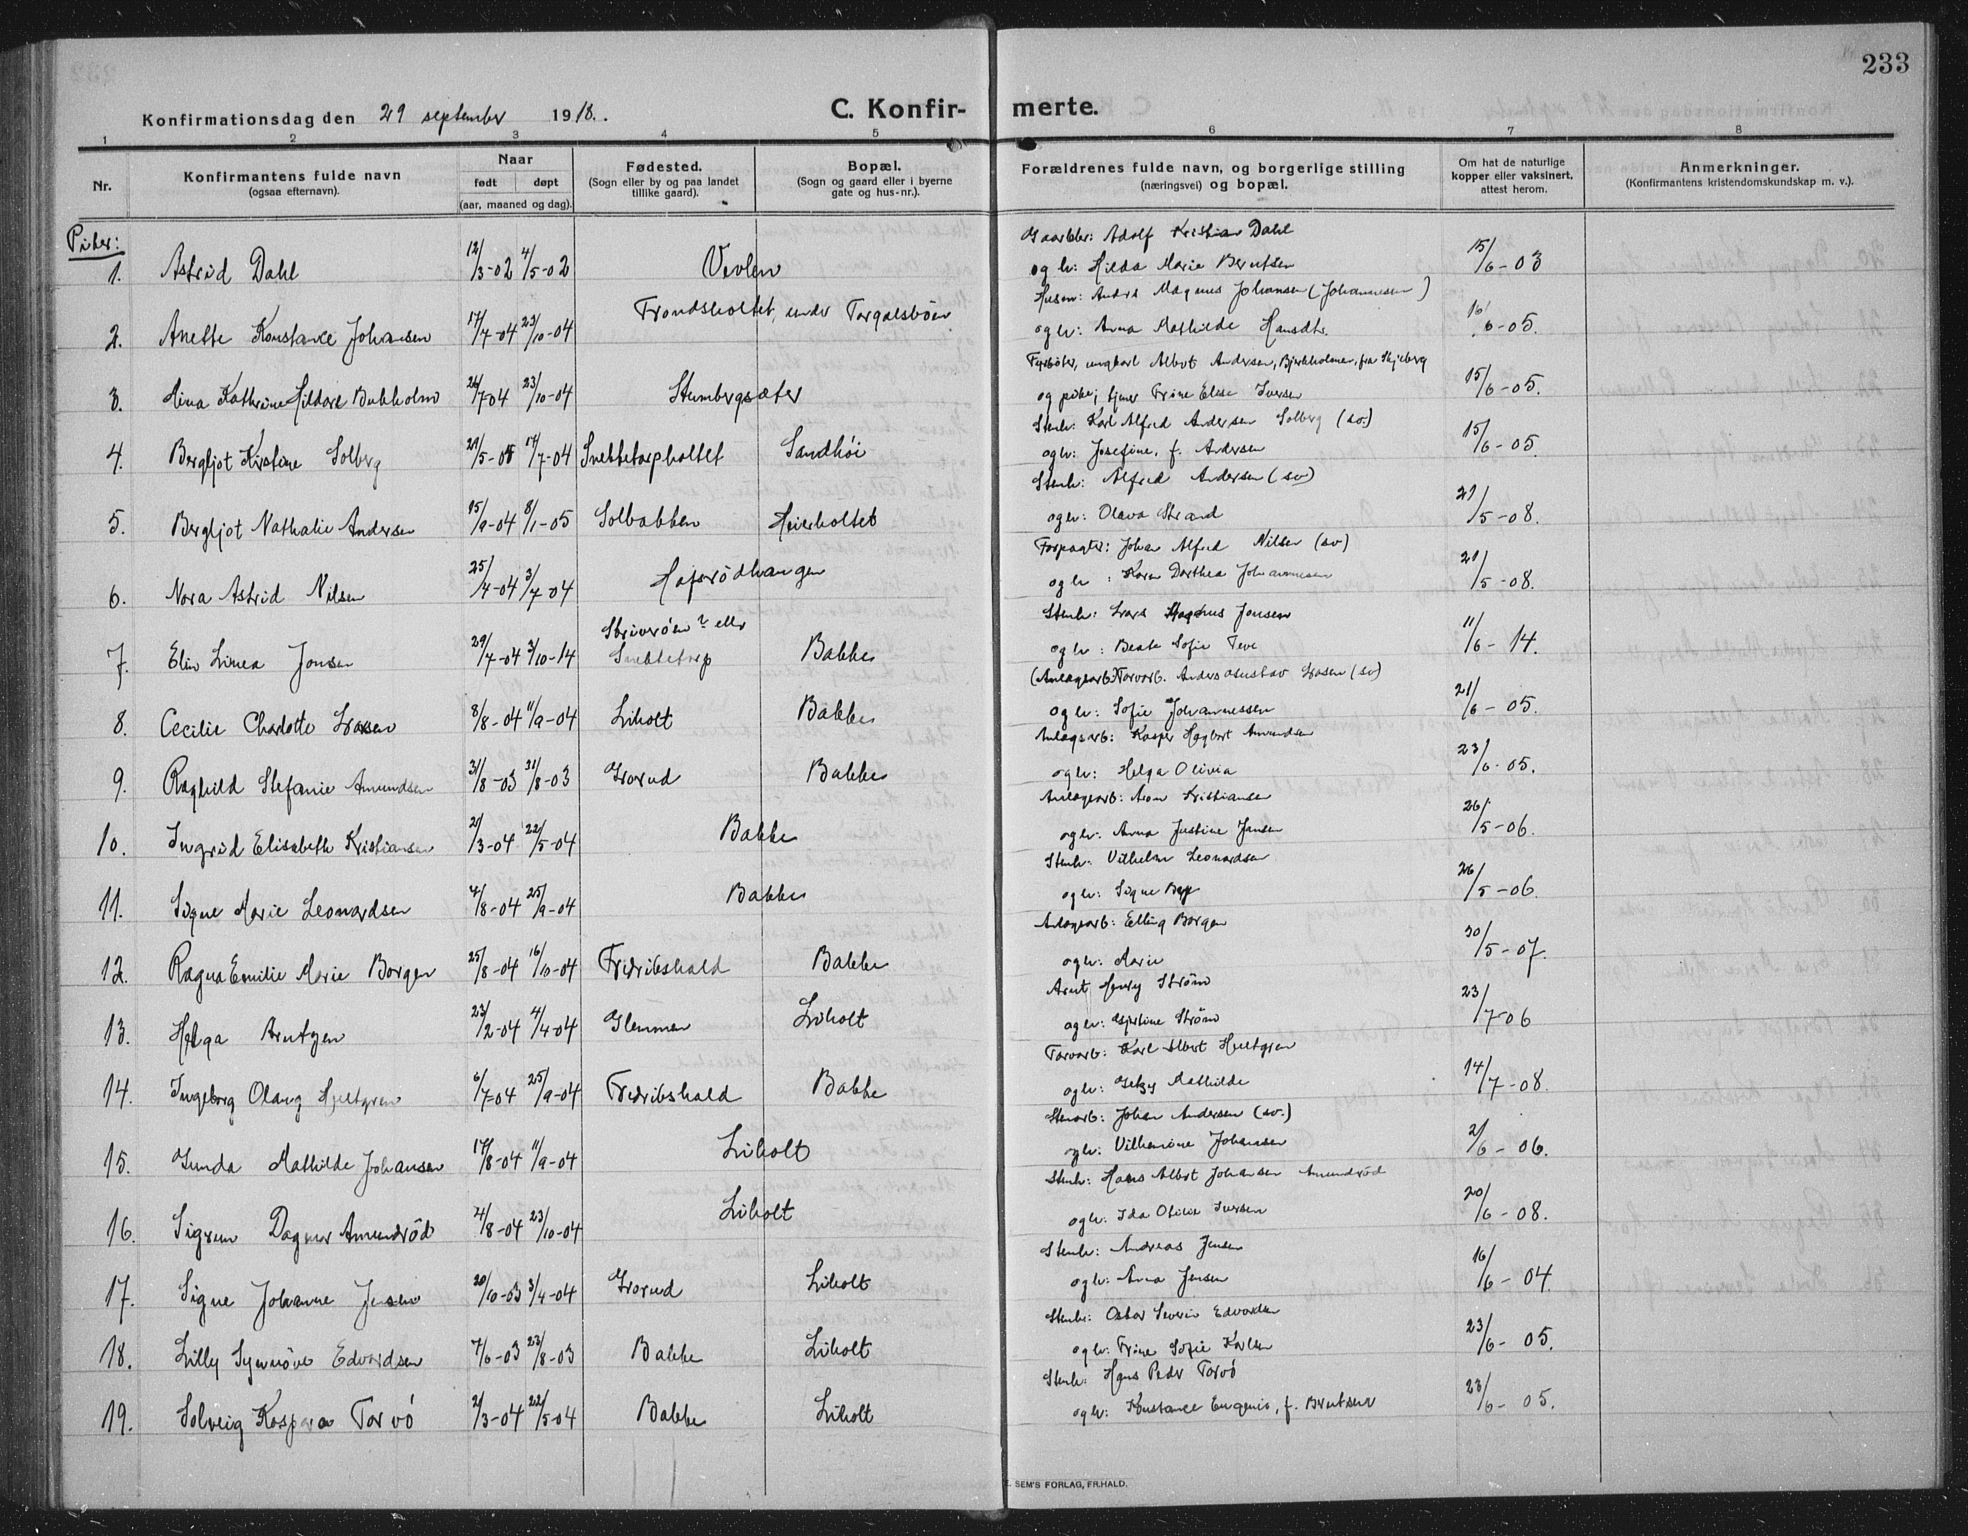 233
Konfirmationsdag den 29 september 1918.
C. Konfir- merte.
1 2 3 4 5 6 7 8
Nr.
Konfirmantens fulde navn
(ogsaa efternavn).
Naar
født døpt
(aar, maaned og dag).
Fødested.
(Sogn eller by og paa landet
tillike gaard).
Bopæl.
(Sogn og gaard eller i byerne
gate og hus-nr.).
Forældrenes fulde navn, og borgerlige stilling
(næringsvei) og bopæl.
Om hat de naturlige
kopper eller vaksinert,
attest herom.
Anmerkninger.
(Konfirmantens kristendomskundskap m. v.).
Piker:
Adolf Kristian Dahl
1. Astrid Dahl 12/3-02 4/5-02 Vevlen og hr: Hilda Marie Berntsen 15/6-03
Husm: Anders Magnus Johansen (Johannesen)
2. Anette Konstance Johansen 17/7-04 23/10-04 Trondsholtet, under Torgalsbøen og hr: Anna Mathilde Hansdtr. 16/6-05.
ungkarl Albert Andersen, Bjerkholmen, fra Skjeberg
3. Kathrine Hildare 26/7-04 23/10-04 og pike, tjener Trine Elise Iversen 15/6-05.
Stenh: Karl Alfred Andersen Solberg (sv.)
4. Bergljot Kristine Solberg 17/7-04 Snekketorpholtet Sandhøi og hr: Josefine, f. Andersen 15/6-05.
Stenh: Alfred Andersen (sv)
5. Bergljot Nathalie Andersen 15/9-04 8/1-05 Solbakken Heierholtet og hr: Olava Strand 29/5-08.
Forpagter: Johan Alfred Nilsen (sv)
6. Nora Astrid Nilsen 25/4-04 3/7-04 Hafsrödhaugen og hr: Karen Dorthea Johannesen 29/5-08.
Stenh: Lars Magnus Jonsen
7. Elin Linea Jonsen 29/7-04 3/10-14 Skriverøen? eller Snekketorp Bakke og hr: Beate Sofie Teve 11/6-14.
(Anlægsarb.) Torvarb. Anders Gustav Larsen (sv)
8. Cecilie Charlotte Larsen 8/8-04 11/9-04 Liholt Bakke og hr: Sofie Johannessen 21/6-05.
Anlægsarb: Kasper Hagbart Amundsen
9. Raghild Stefanie Amundsen 31/8-03 Grorud Bakke og hr: Helga Olivia 23/6-05.
Anlægsarb: Aron Kristiansen
10. Ingrid Elisabeth Kristiansen 21/3-04 22/5-04 Bakke og hr: Anna Justine Jansen 26/5-06.
Stenh: Vilhelm Leonardsen
11. Signe Marie Leonardsen 4/8-04 25/9-04 Bakke og hr: Signe Berg 26/5-06.
Anlægsarb: Elling Borgen
12. Ragna Emilie Marie Borgen 25/8-04 16/10-04 Fredrikshald Bakke og hr: Marie 30/5-07.
Arnt Henry Strøm
13. Helga Arntzen 23/2-04 4/4-04 Glemmen Liholt og hr: Gjertine Strøm 23/7-06
Torvarb: Karl Albert Hjeltgren
14. Ingeborg Olaug Hjeltgren 6/7-04 25/9-04 Fredrikshald Bakke og hr: Mathilde 14/7-08.
Stenarb: Johan Andersen (sv.)
15. Gunda Mathilde Johansen 17/8-04 11/9-04 Liholt og hr: Vilhemine Johansen 2/6-06.
Stenh: Hans Albert Johansen Amundrød
16. Sigrun Dagmar Amundrød 4/8-04 23/10-04 Liholt og hr: Ida Otilie Iversen 20/6-08.
Stenh: Andreas Jensen
17. Signe Johanne Jensen 20/10-03 3/4-04 Grorud Liholt og hr: Anna Jensen 16/6-04.
Stenh: Oskar Severin Edvardsen
18. Lilly Synnøve Edvardsen 7/6-03 23/8-03 Bakke Liholt og hr: Trine Sofie Karlsen 23/6-05.
Stenh: Hans Peder Torvø
19. Solveig Kaspara Torvø 2/3-04 22/5-04 Bakke Liholt og hr: Konstance Eugenie, f. Berntsen 23/6-05.
SEM'S FORLAG, FR.HALD.